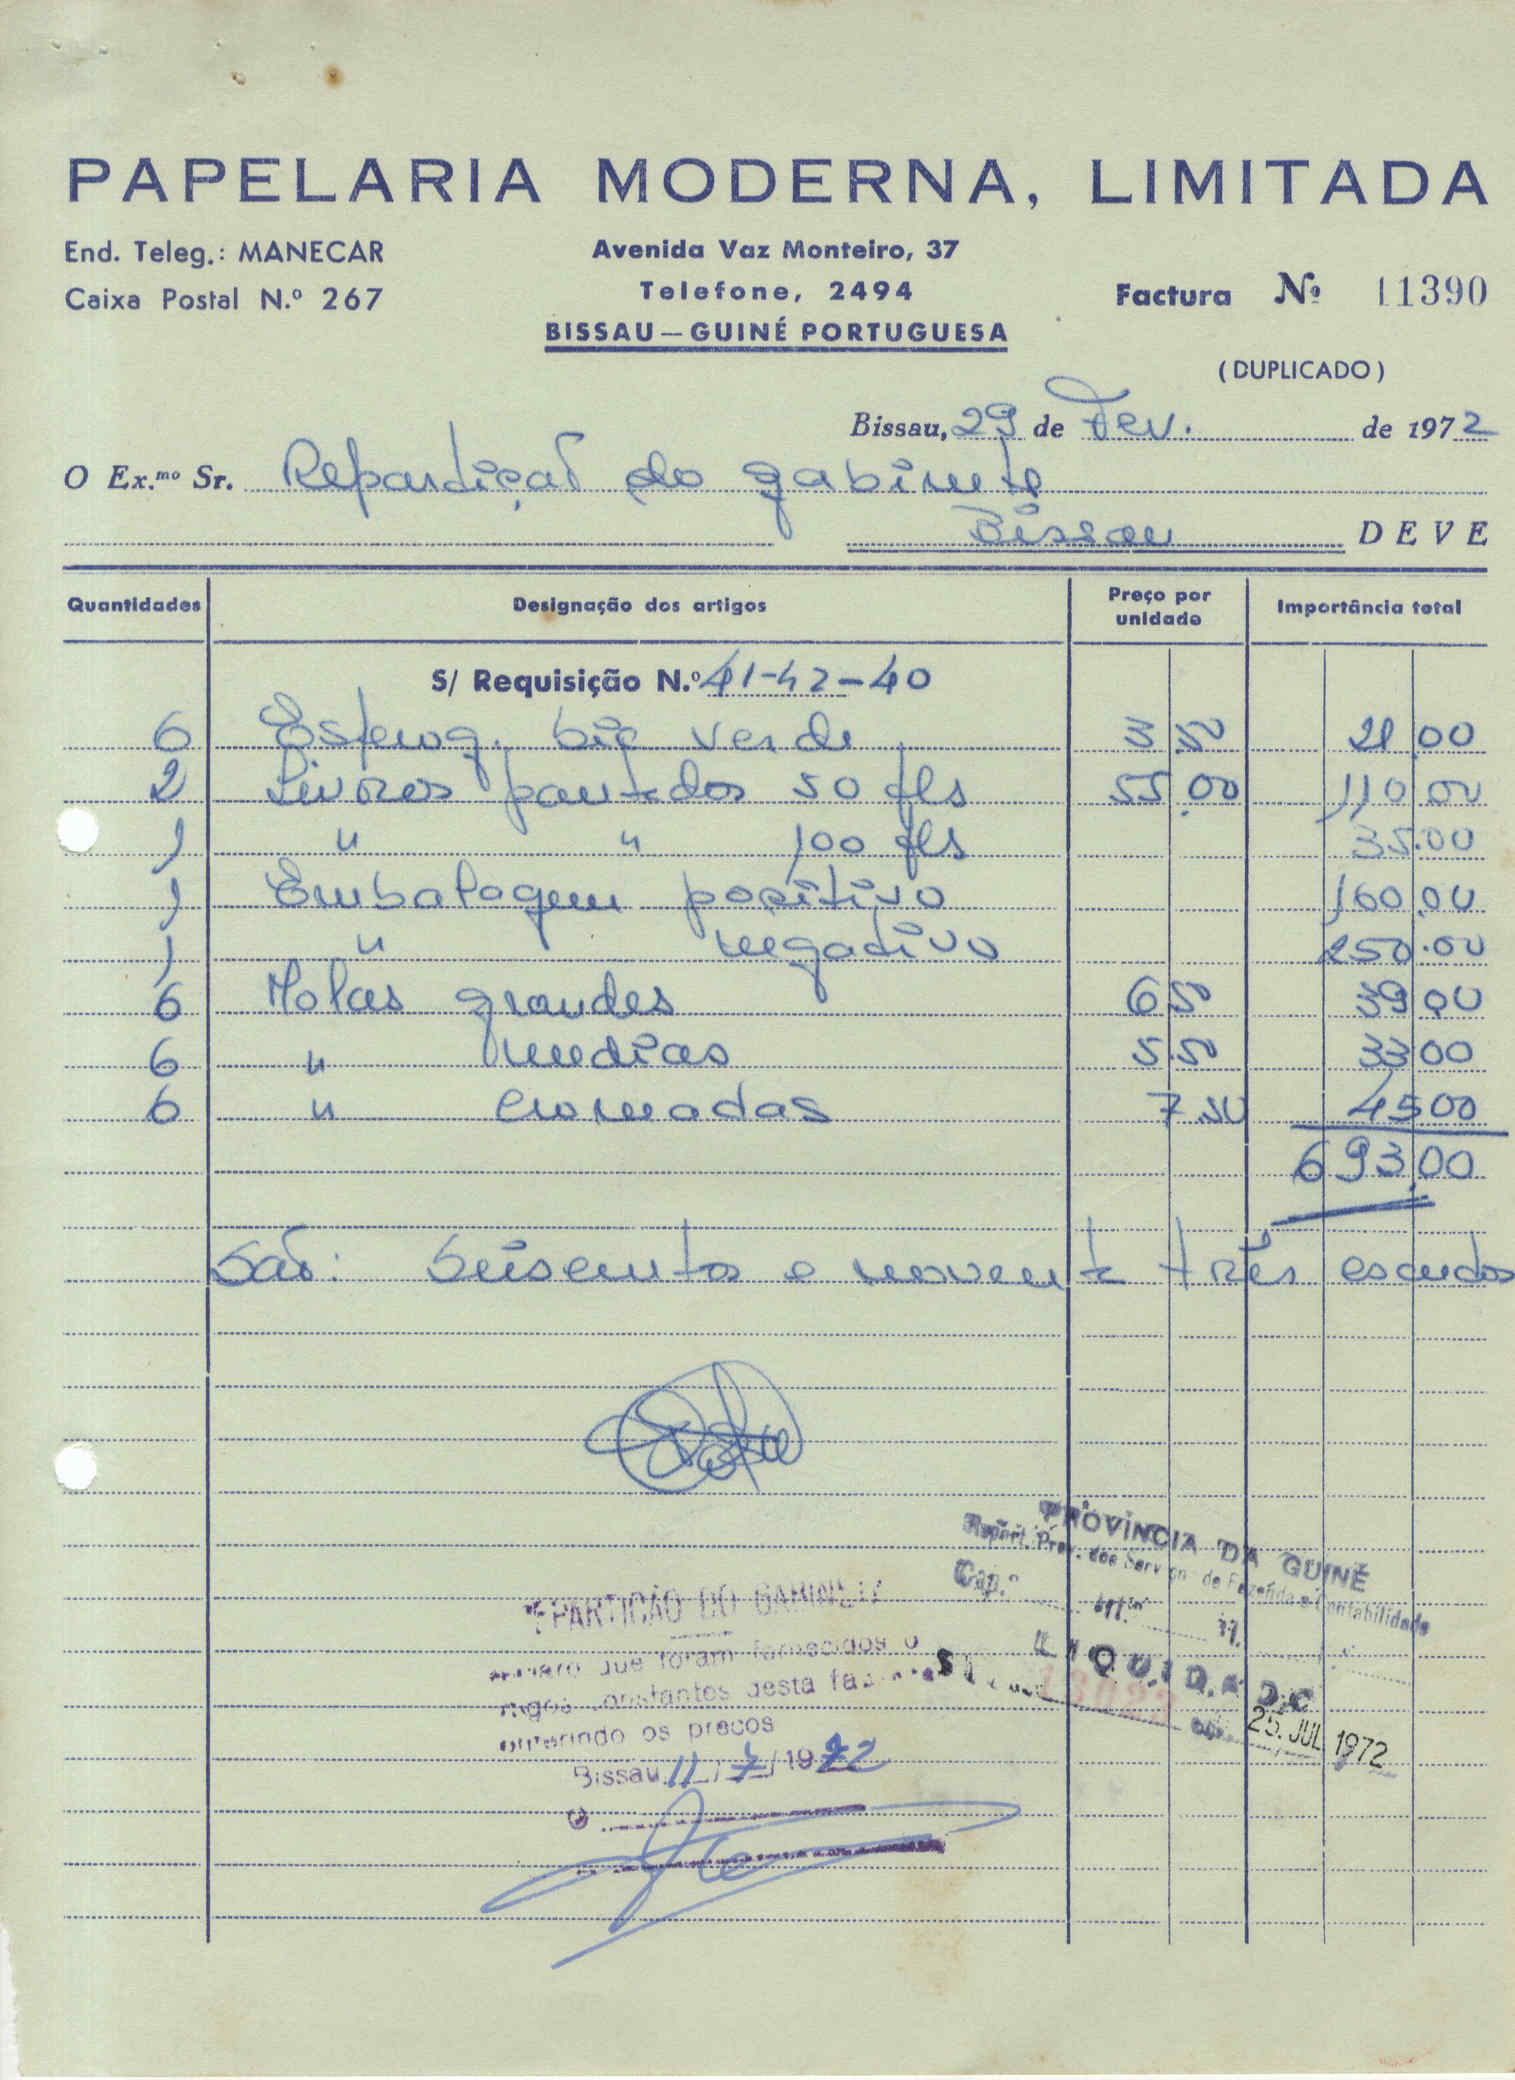 PAPELARIA MODERNA, LIMITADA
End. Teleg.: MANECAR
Caixa Postal N.º 267
Avenida Vaz Monteiro, 37
Telefone, 2494
BISSAU—GUINÉ PORTUGUESA
Factura Nº 11390
(DUPLICADO)
Bissau, 29 de Fev. de 1972
O Ex.mo Sr. Repartição do gabinete
Bissau DEVE
Quantidades Designação dos artigos Preço por unidade Importância total
S/ Requisição N.º 41-42-40
6 Esferog. bic verde 3.50 21.00
2 Livros pautados 50 fls 55.00 110.00
1 " " 100 fls 35.00
1 Embalagem positivo 160.00
1 " negativo 250.00
6 Molas grandes 6.50 39.00
6 " medias 5.50 33.00
6 " cromadas 7.50 45.00
693.00
São: Seiscentos e noventa três escudos
PROVÍNCIA DA GUINÉ
Repart. Prov. dos Serviços de Fazenda e Contabilidade
Cap.º
LIQUIDADO
25. JUL 1972
REPARTIÇÃO DO GABINETE
que foram fornecidos o
constantes desta
os preços
Bissau 11/7/1972
O